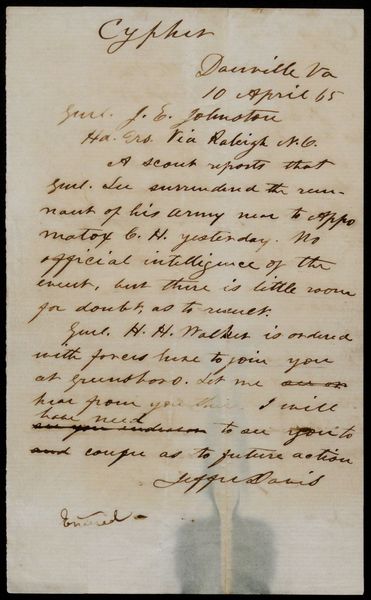 Cypher
Danville Va
10 April 65
Genl. J. E. Johnston
Hd. Qrs. Via Raleigh N.C.
A scout reports that
Genl. Lee surrendered the rem-
nant of his army near to Appo
matox C. H. yesterday. No
official intelligence of the
event, but there is little room
for doubt, as to result.
Genl. H. H. Walker is ordered
with forces here to join you
at Greensboro. Let me
hear from you there. I will
have need
to see you to
confer as to future action
Jeffn Davis
Entered